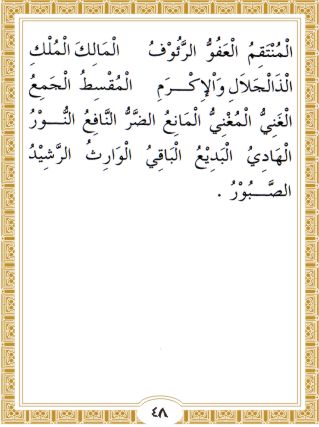 الْمُنْتَقِمُ الْعَفُوُّ الرَّئُوْفُ الْمَالِكَ الْمُلْكِ
الْذَالْجَلَالِ وَالْإِكْـرَمِ الْمُقْسِطُ الْجَمِعُ
الْغَنِيُّ الْمُغْنِيُّ الْمَانِعُ الضَّرُّ النَّافِعُ النُّـــوْرُ
الْهَادِيُ الْبَدِيْعُ الْبَاقِيُ الْوَارِثُ الرَّشِيْدُ
الصَّـــبُوْرُ .
٤٨